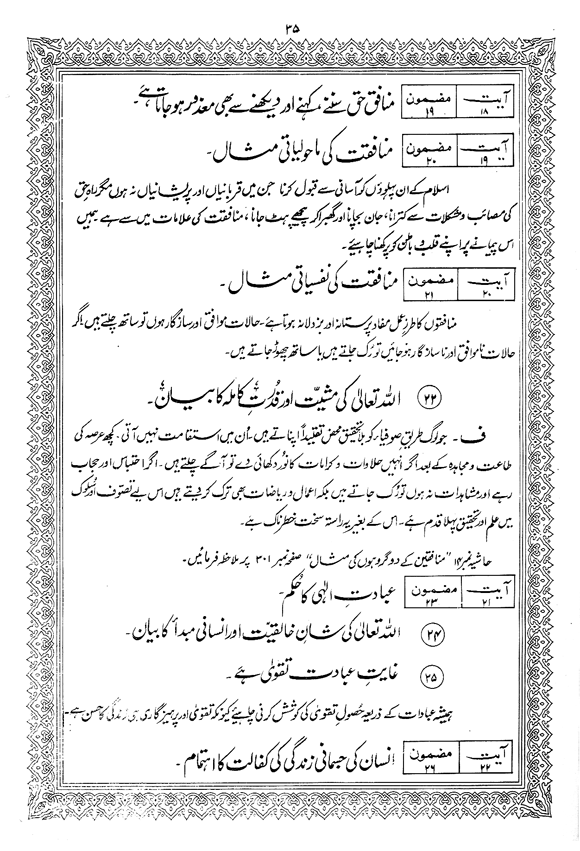 ۳۵
آیت ۱۸ مضمون ۱۹ منافق حق سننے، کہنے اور دیکھنے سے بھی معذور ہو جاتا ہے۔
آیت ۱۹ مضمون ۲۰ منافقت کی ماحولیاتی مثال۔
اسلام کے ان پہلوؤں کو آسانی سے قبول کرنا جن میں قربانیاں اور پریشانیاں نہ ہوں مگر راہِ حق
کی مصائب و مشکلات سے کترانا، جان بچانا اور گھبرا کر پیچھے ہٹ جانا، منافقت کی علامات میں سے ہے ہمیں
اس پیمانے پر اپنے قلب و باطن کو پرکھنا چاہیئے۔
آیت ۲۰ مضمون ۲۱ منافقت کی نفسیاتی مثال۔
منافقوں کا طرزِ عمل مفاد پرستانہ اور بزدلانہ ہوتا ہے۔ حالات موافق اور سازگار ہوں تو ساتھ چلتے ہیں اگر
حالات ناموافق اور ناسازگار ہو جائیں تو رک جاتے ہیں یا ساتھ چھوڑ جاتے ہیں۔
۲۲ اللہ تعالیٰ کی مشیّت اور قدرتِ کاملہ کا بیان۔
ف ۔ جو لوگ طریقِ صوفیاء کو بلا تحقیق محض تقلیداً اپناتے ہیں۔ اُن میں استقامت نہیں آتی۔ کچھ عرصہ کی
طاعت و مجاہدہ کے بعد اگر انہیں حلاوات و کرامات کا نور دکھائی دے تو آگے چلتے ہیں۔ اگر احتباس اور حجاب
رہے اور مشاہدات نہ ہوں تو رُک جاتے ہیں بلکہ اعمال و ریاضات بھی ترک کر دیتے ہیں اس لیے تصوف اور سلوک
میں علم اور تحقیق پہلا قدم ہے۔ اس کے بغیر یہ راستہ سخت خطرناک ہے۔
حاشیہ نمبر ۱۴ "منافقین کے دو گروہوں کی مثال" صفحہ نمبر ۳۰۱ پر ملاحظہ فرمائیں۔
آیت ۲۱ مضمون ۲۳ عبادتِ الٰہی کا حُکم۔
۲۴ اللہ تعالیٰ کی شانِ خالقیّت اور انسانی مبدأ کا بیان۔
۲۵ غایتِ عبادت تقویٰ ہے۔
ہمیشہ عبادات کے ذریعہ حُصولِ تقویٰ کی کوشش کرنی چاہیئے کیونکہ تقویٰ اور پرہیزگاری ہی زندگی کا حسن ہے۔
آیت ۲۲ مضمون ۲۶ انسان کی جسمانی زندگی کی کفالت کا اہتمام۔